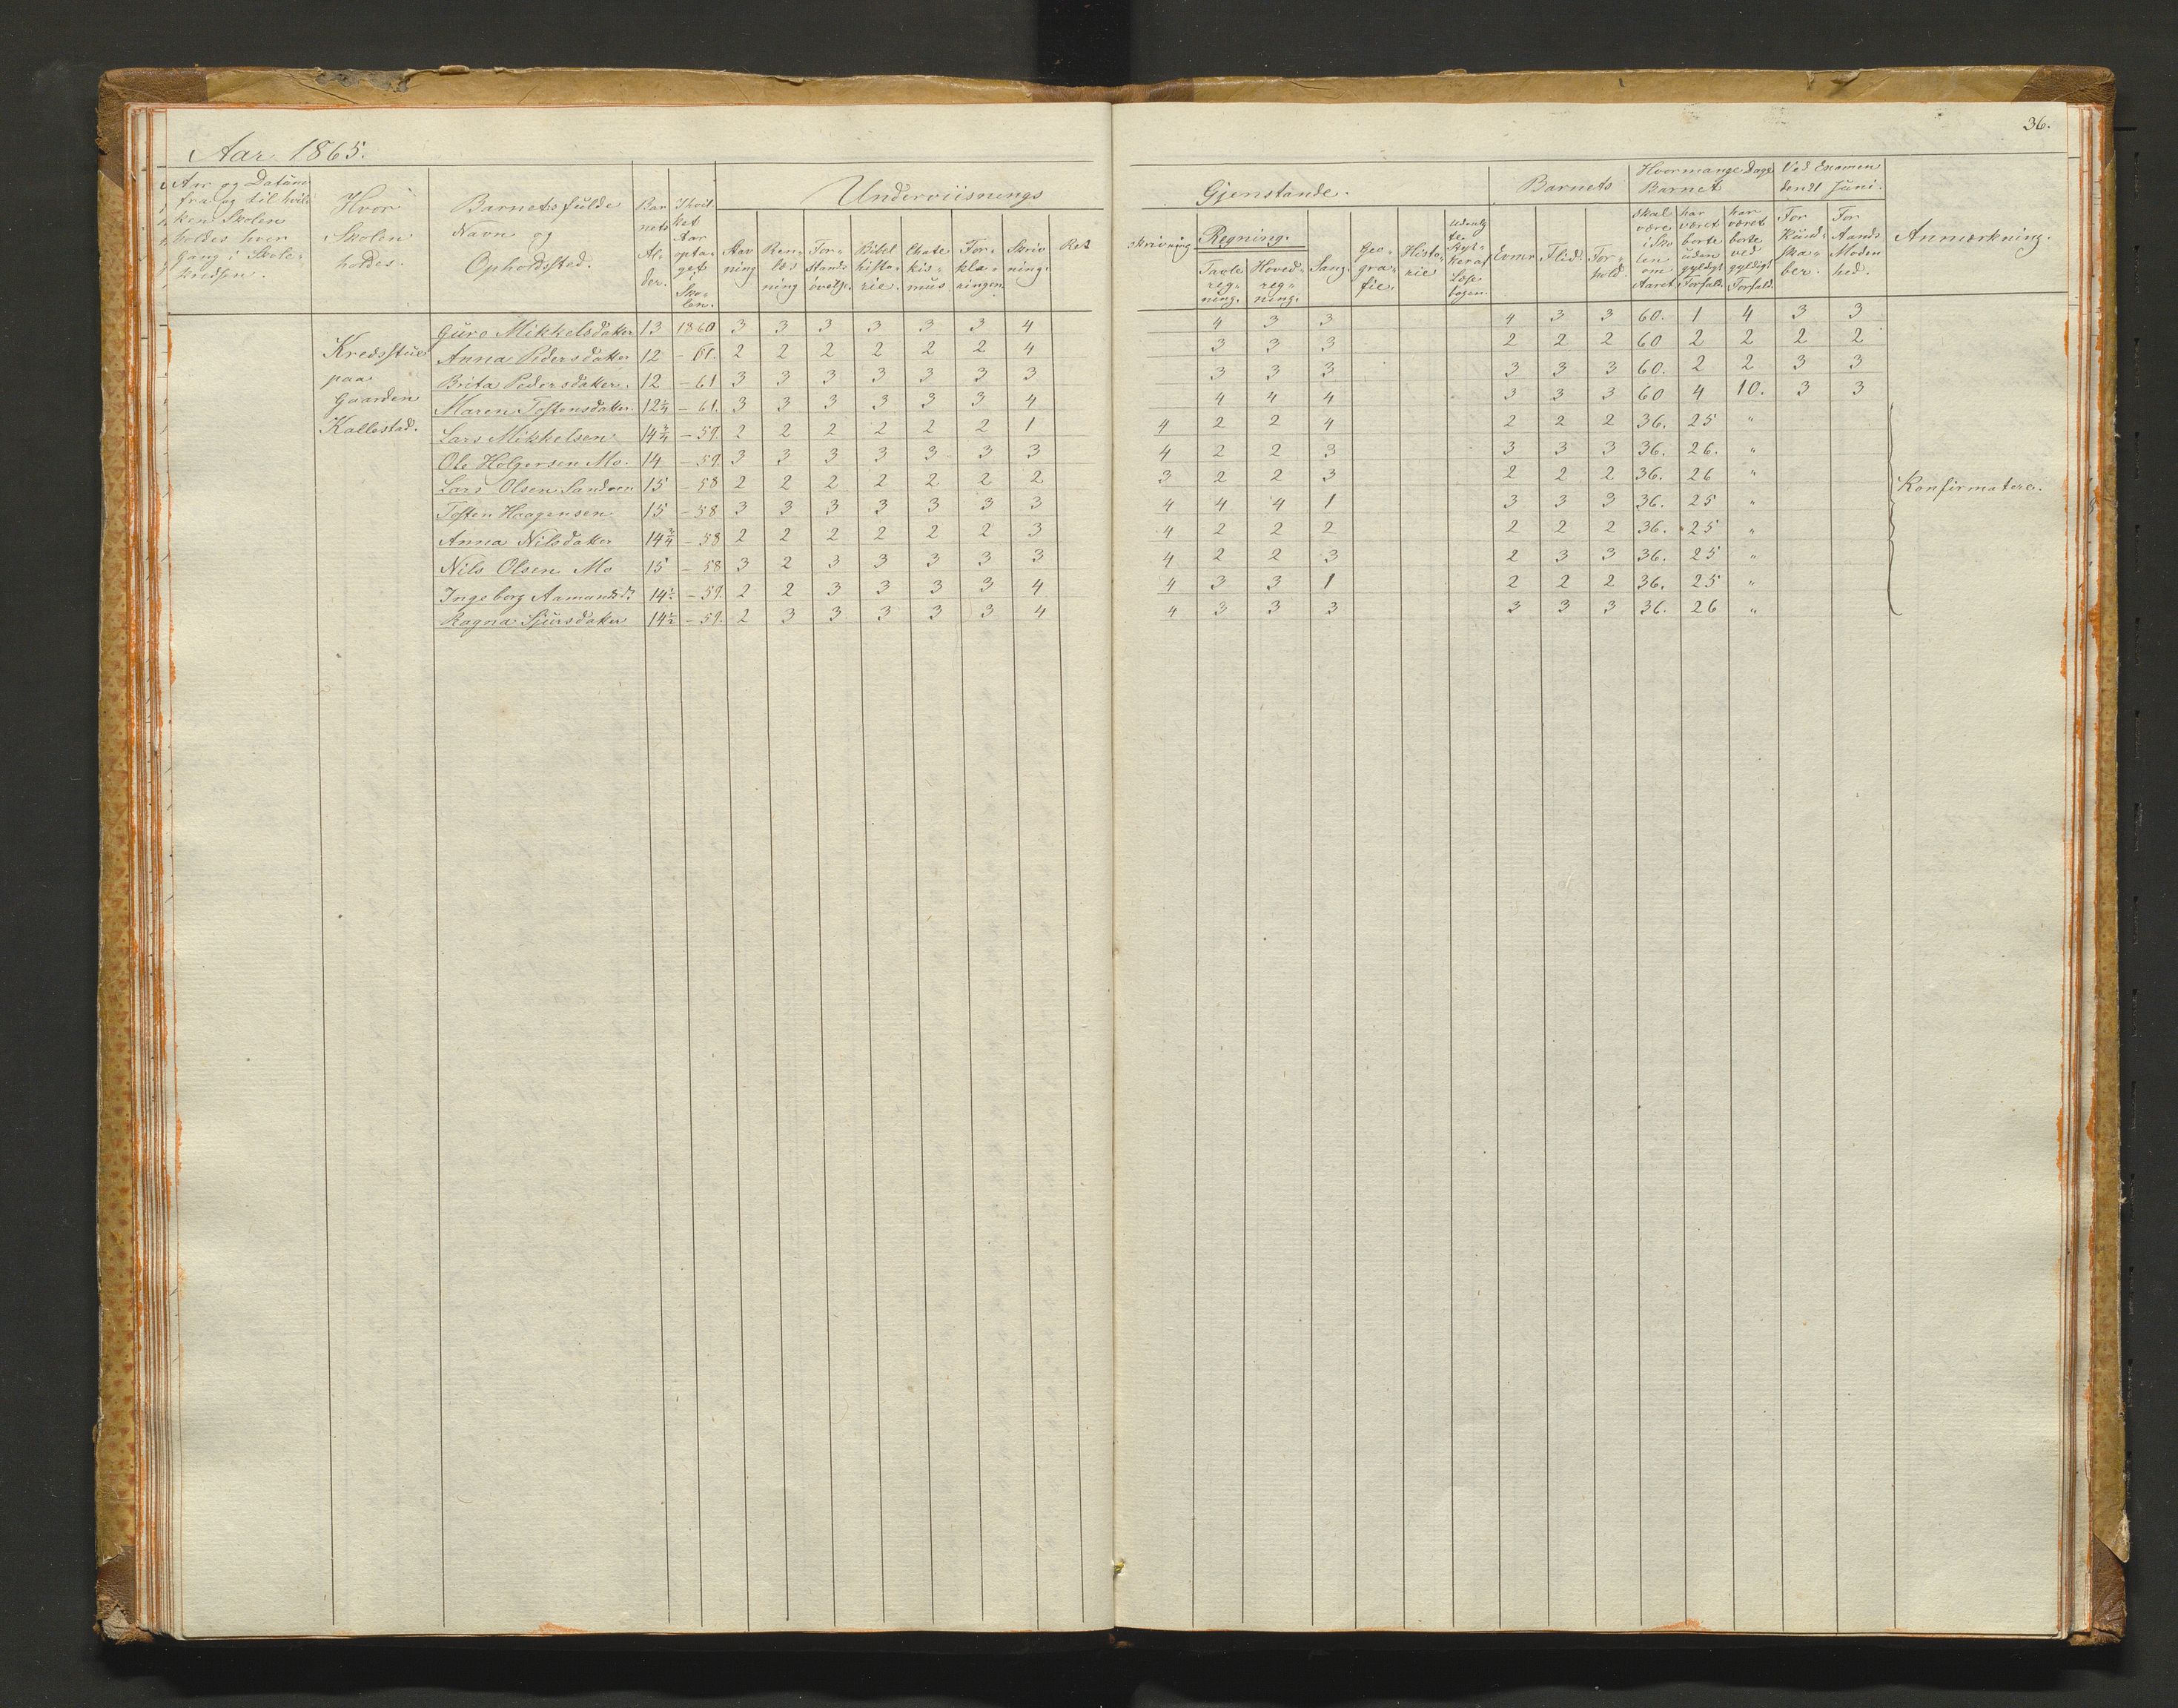 36.
Aar 1865.
Aar og Datum fra og til hvilken Skolen holdes hver Gang i Skolekredsen.
Hvor Skolen holdes.
Barnets fulde Navn og Opholdssted.
Barnets Alder.
I hvilket Aar optaget i Skolen.
Underviisnings Gjenstande.
Stavning
Renlæsning
Forstandsøvelse.
Bibelhistorie.
Chatekismus
Forklaringen
Skrivning.
Retskrivning
Regning.
Tavleregning.
Hovedregning.
Sang.
Geografie.
Historie
Barnets
Evner
Flid.
Forhold.
Hvormange Dage Barnet
skal være i Skolen om Aaret
har været borte uden gyldigt Forfald.
har været borte ved gyldigt Forfald.
Ved Examen den 21 Juni.
For Kundskaber.
For Aands Modenhed.
Anmærkning.
Guro Mikkelsdatter 13 1860 3 3 3 3 3 3 4 4 3 3 4 3 3 60. 1 4 3 3
Kredsstue Anna Pedersdatter 12 – 61. 2 2 2 2 2 2 4 3 3 3 2 2 2 60 2 2 2 2
paa Brita Pedersdatter. 12 – 61 3 3 3 3 3 3 3 3 3 3 3 3 3 60. 2 2 3 3
Gaarden Maren Tostensdatter 12¼ – 61. 3 3 3 3 3 3 4 4 4 4 3 3 3 60 4 10. 3 3
Kallestad. Lars Mikkelsen 14¾ – 59. 2 2 2 2 2 2 1 4 2 2 4 2 2 2 36. 25 "
Ole Holgersen Mo. 14 – 59. 3 3 3 3 3 3 3 4 2 2 3 3 3 3 36. 26. "
Lars Olsen Sandven 15 – 58 2 2 2 2 2 2 2 3 2 2 3 2 2 2 36. 26 "
Tosten Haagensen 15 – 58 3 3 3 3 3 3 3 4 4 4 1 3 3 3 36. 25 "
Konfirmatere.
Anna Nilsdatter 14¾ – 58 2 2 2 2 2 2 3 4 2 2 2 2 2 2 36. 25 "
Nils Olsen Mo 15 – 58 3 2 3 3 3 3 3 4 2 2 3 2 3 3 36. 25 "
Ingeborg Aamundsd. 14½ – 59. 2 2 3 3 3 3 4 4 3 3 1 2 2 2 36. 25 "
Ragna Sjursdatter 14½ – 59. 2 3 3 3 3 3 4 4 3 3 3 3 3 3 36. 26 "